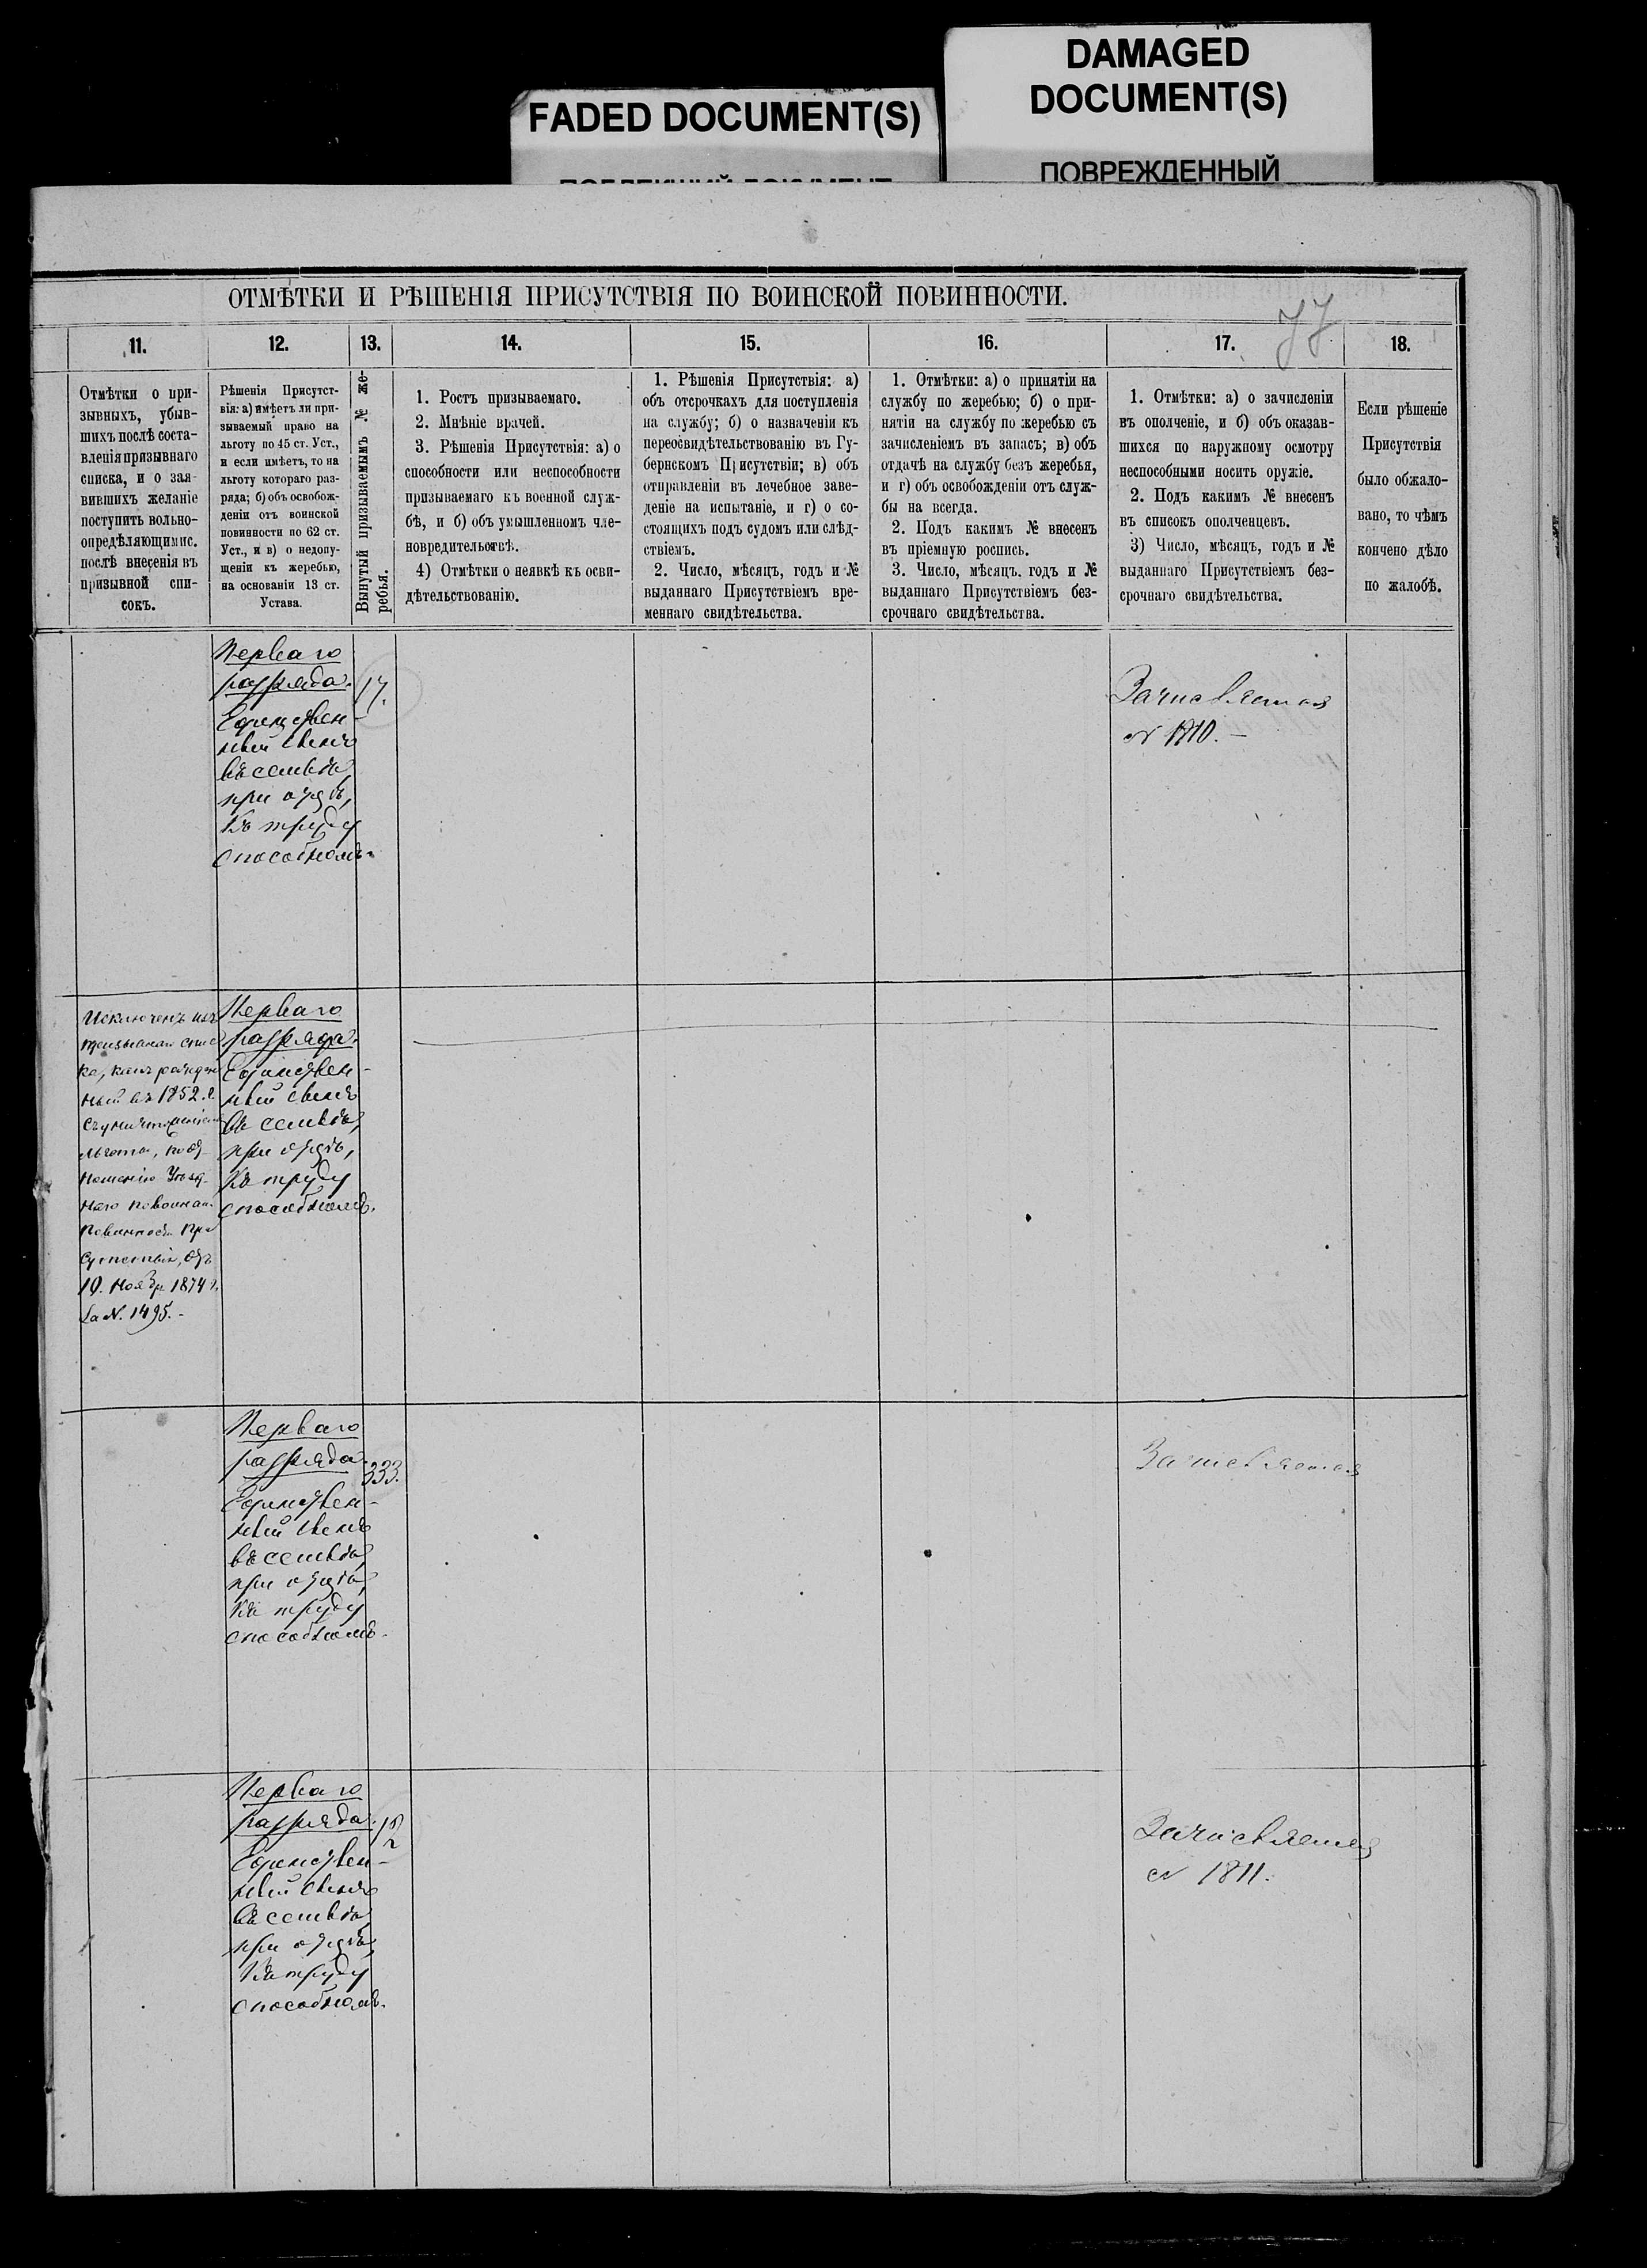 DAMAGED
DOCUMENT(S)
ПОВРЕЖДЕННЫЙ
FADED DOCUMENT(S)
ОТМѢТКИ И РѢШЕНІЯ ПРИСУТСТВІЯ ПО ВОИНСКОЙ ПОВИННОСТИ.
77
11.
12.
13.
14.
15.
16.
17.
18.
Отмѣтки о при-
зывныхъ, убыв-
шихъ послѣ соста-
вленія призывнаго
списка, и о зая-
вившихъ желаніе
поступить вольно-
опредѣляющимис.
послѣ внесенія въ
призывной спи-
сокъ.
Рѣшенія Присутст-
вія: а) имѣетъ ли при-
зываемый право на
льготу по 45 ст. Уст.,
и если имѣетъ, то на
льготу котораго раз-
ряда; б) объ освобож-
деніи отъ воинской
повинности по 62 ст.
Уст., и в) о недопу-
щеніи къ жеребью,
на основаніи 13 ст.
Устава.
Вынутый призываемымъ № же-
ребья.
1. Ростъ призываемаго.
2. Мнѣніе врачей.
3. Рѣшенія Присутствія: а) о
способности или неспособности
призываемаго къ военной служ-
бѣ, и б) объ умышленномъ чле-
новредительствѣ.
4) Отмѣтки о неявкѣ къ осви-
дѣтельствованію.
1. Рѣшенія Присутствія: а)
объ отсрочкахъ для поступленія
на службу; б) о назначеніи къ
переосвидѣтельствованію въ Гу-
бернскомъ Присутствіи; в) объ
отправленіи въ лечебное заве-
деніе на испытаніе, и г) о со-
стоящихъ подъ судомъ или слѣд-
ствіемъ.
2. Число, мѣсяцъ, годъ и №
выданнаго Присутствіемъ вре-
меннаго свидѣтельства.
1. Отмѣтки: а) о принятіи на
службу по жеребью; б) о при-
нятіи на службу по жеребью съ
зачисленіемъ въ запасъ; в) объ
отдачѣ на службу безъ жеребья,
и г) объ освобожденіи отъ служ-
бы на всегда.
2. Подъ какимъ № внесенъ
въ пріемную роспись.
3. Число, мѣсяцъ. годъ и №
выданнаго Присутствіемъ без-
срочнаго свидѣтельства.
1. Отмѣтки: а) о зачисленіи
въ ополченіе, и б) объ оказав-
шихся по наружному осмотру
неспособными носить оружіе.
2. Подъ какимъ № внесенъ
въ списокъ ополченцевъ.
3) Число, мѣсяцъ, годъ и №
выданнаго Присутствіемъ без-
срочнаго свидѣтельства.
Если рѣшеніе
Присутствія
было обжало-
вано, то чѣмъ
кончено дѣло
по жалобѣ.
Перваго
разряда.
Единствен-
ный сынъ
въ семьѣ,
при отцѣ,
къ труду
способномъ.
17.
Зачисляется
N 1810.-
Исключенъ изъ
призывнаго спис
ка, какъ рожден
ный въ 1852 г.
съ уничтоженіемъ
льготы, по от-
ношенію Уѣзд-
наго по воинск.
повинности При
сутствія, отъ
10. Ноября 1874 г.
за N. 1495.-
Перваго
разряда.
Единствен-
ный сынъ
въ семьѣ,
при отцѣ,
къ труду
способномъ.
Перваго
разряда.
Единствен-
ный сынъ
въ семьѣ,
при отцѣ,
къ труду
способномъ.
333.
Зачисляется
Перваго
разряда.
Единствен-
ный сынъ
въ семьѣ,
при отцѣ,
къ труду
способномъ.
Зачисляется
N 1811.